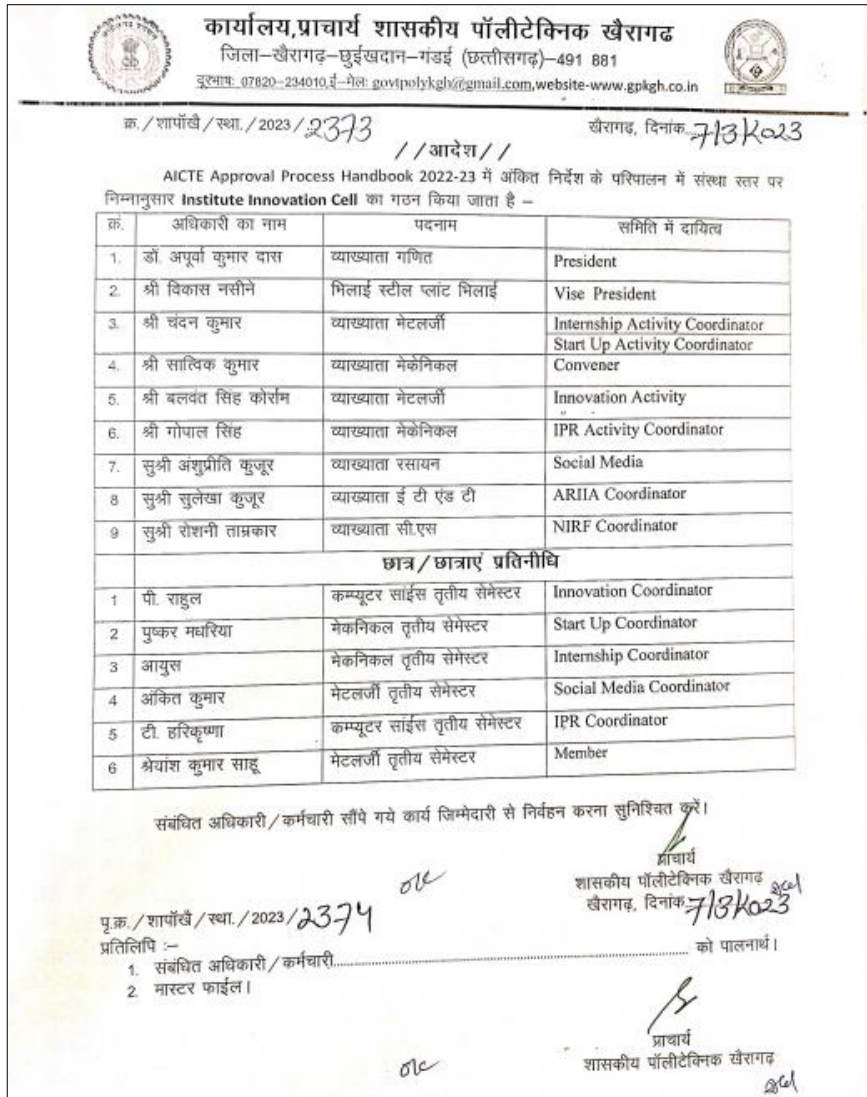 कार्यालय,प्राचार्य शासकीय पॉलीटेक्निक खैरागढ
जिला–खैरागढ़–छुईखदान–गंडई (छत्तीसगढ़)–491 881
दूरभाषः 07820–234010,ई–मेलः govtpolykgh@gmail.com,website-www.gpkgh.co.in
क्र./शापॉखै/स्था./2023/2373 खैरागढ़, दिनांक 7/3/2023
//आदेश//
AICTE Approval Process Handbook 2022-23 में अंकित निर्देश के परिपालन में संस्था स्तर पर
निम्नानुसार Institute Innovation Cell का गठन किया जाता है –
क्रं. अधिकारी का नाम पदनाम समिति में दायित्व
1. डॉ. अपूर्वा कुमार दास व्याख्याता गणित President
2. श्री विकास नसीने भिलाई स्टील प्लांट भिलाई Vise President
3. श्री चंदन कुमार व्याख्याता मेटलर्जी Internship Activity Coordinator
Start Up Activity Coordinator
4. श्री सात्विक कुमार व्याख्याता मेकेनिकल Convener
5. श्री बलवंत सिंह कोर्राम व्याख्याता मेटलर्जी Innovation Activity
6. श्री गोपाल सिंह व्याख्याता मेकेनिकल IPR Activity Coordinator
7. सुश्री अंशुप्रीति कुजूर व्याख्याता रसायन Social Media
8 सुश्री सुलेखा कुजूर व्याख्याता ई टी एंड टी ARIIA Coordinator
9 सुश्री रोशनी ताम्रकार व्याख्याता सी.एस NIRF Coordinator
छात्र/छात्राएं प्रतिनीधि
1 पी. राहुल कम्प्यूटर साईंस तृतीय सेमेस्टर Innovation Coordinator
2 पुष्कर मधरिया मेकनिकल तृतीय सेमेस्टर Start Up Coordinator
3 आयुस मेकनिकल तृतीय सेमेस्टर Internship Coordinator
4 अंकित कुमार मेटलर्जी तृतीय सेमेस्टर Social Media Coordinator
5 टी. हरिकृष्णा कम्प्यूटर साईंस तृतीय सेमेस्टर IPR Coordinator
6 श्रेयांश कुमार साहू मेटलर्जी तृतीय सेमेस्टर Member
संबंधित अधिकारी/कर्मचारी सौंपे गये कार्य जिम्मेदारी से निर्वहन करना सुनिश्चित करें।
प्राचार्य
शासकीय पॉलीटेक्निक खैरागढ़
खैरागढ़, दिनांक 7/3/2023
पृ.क्र./शापॉखै/स्था./2023/2374
प्रतिलिपि :–
1. संबंधित अधिकारी/कर्मचारी........................ को पालनार्थ।
2. मास्टर फाईल।
प्राचार्य
शासकीय पॉलीटेक्निक खैरागढ़